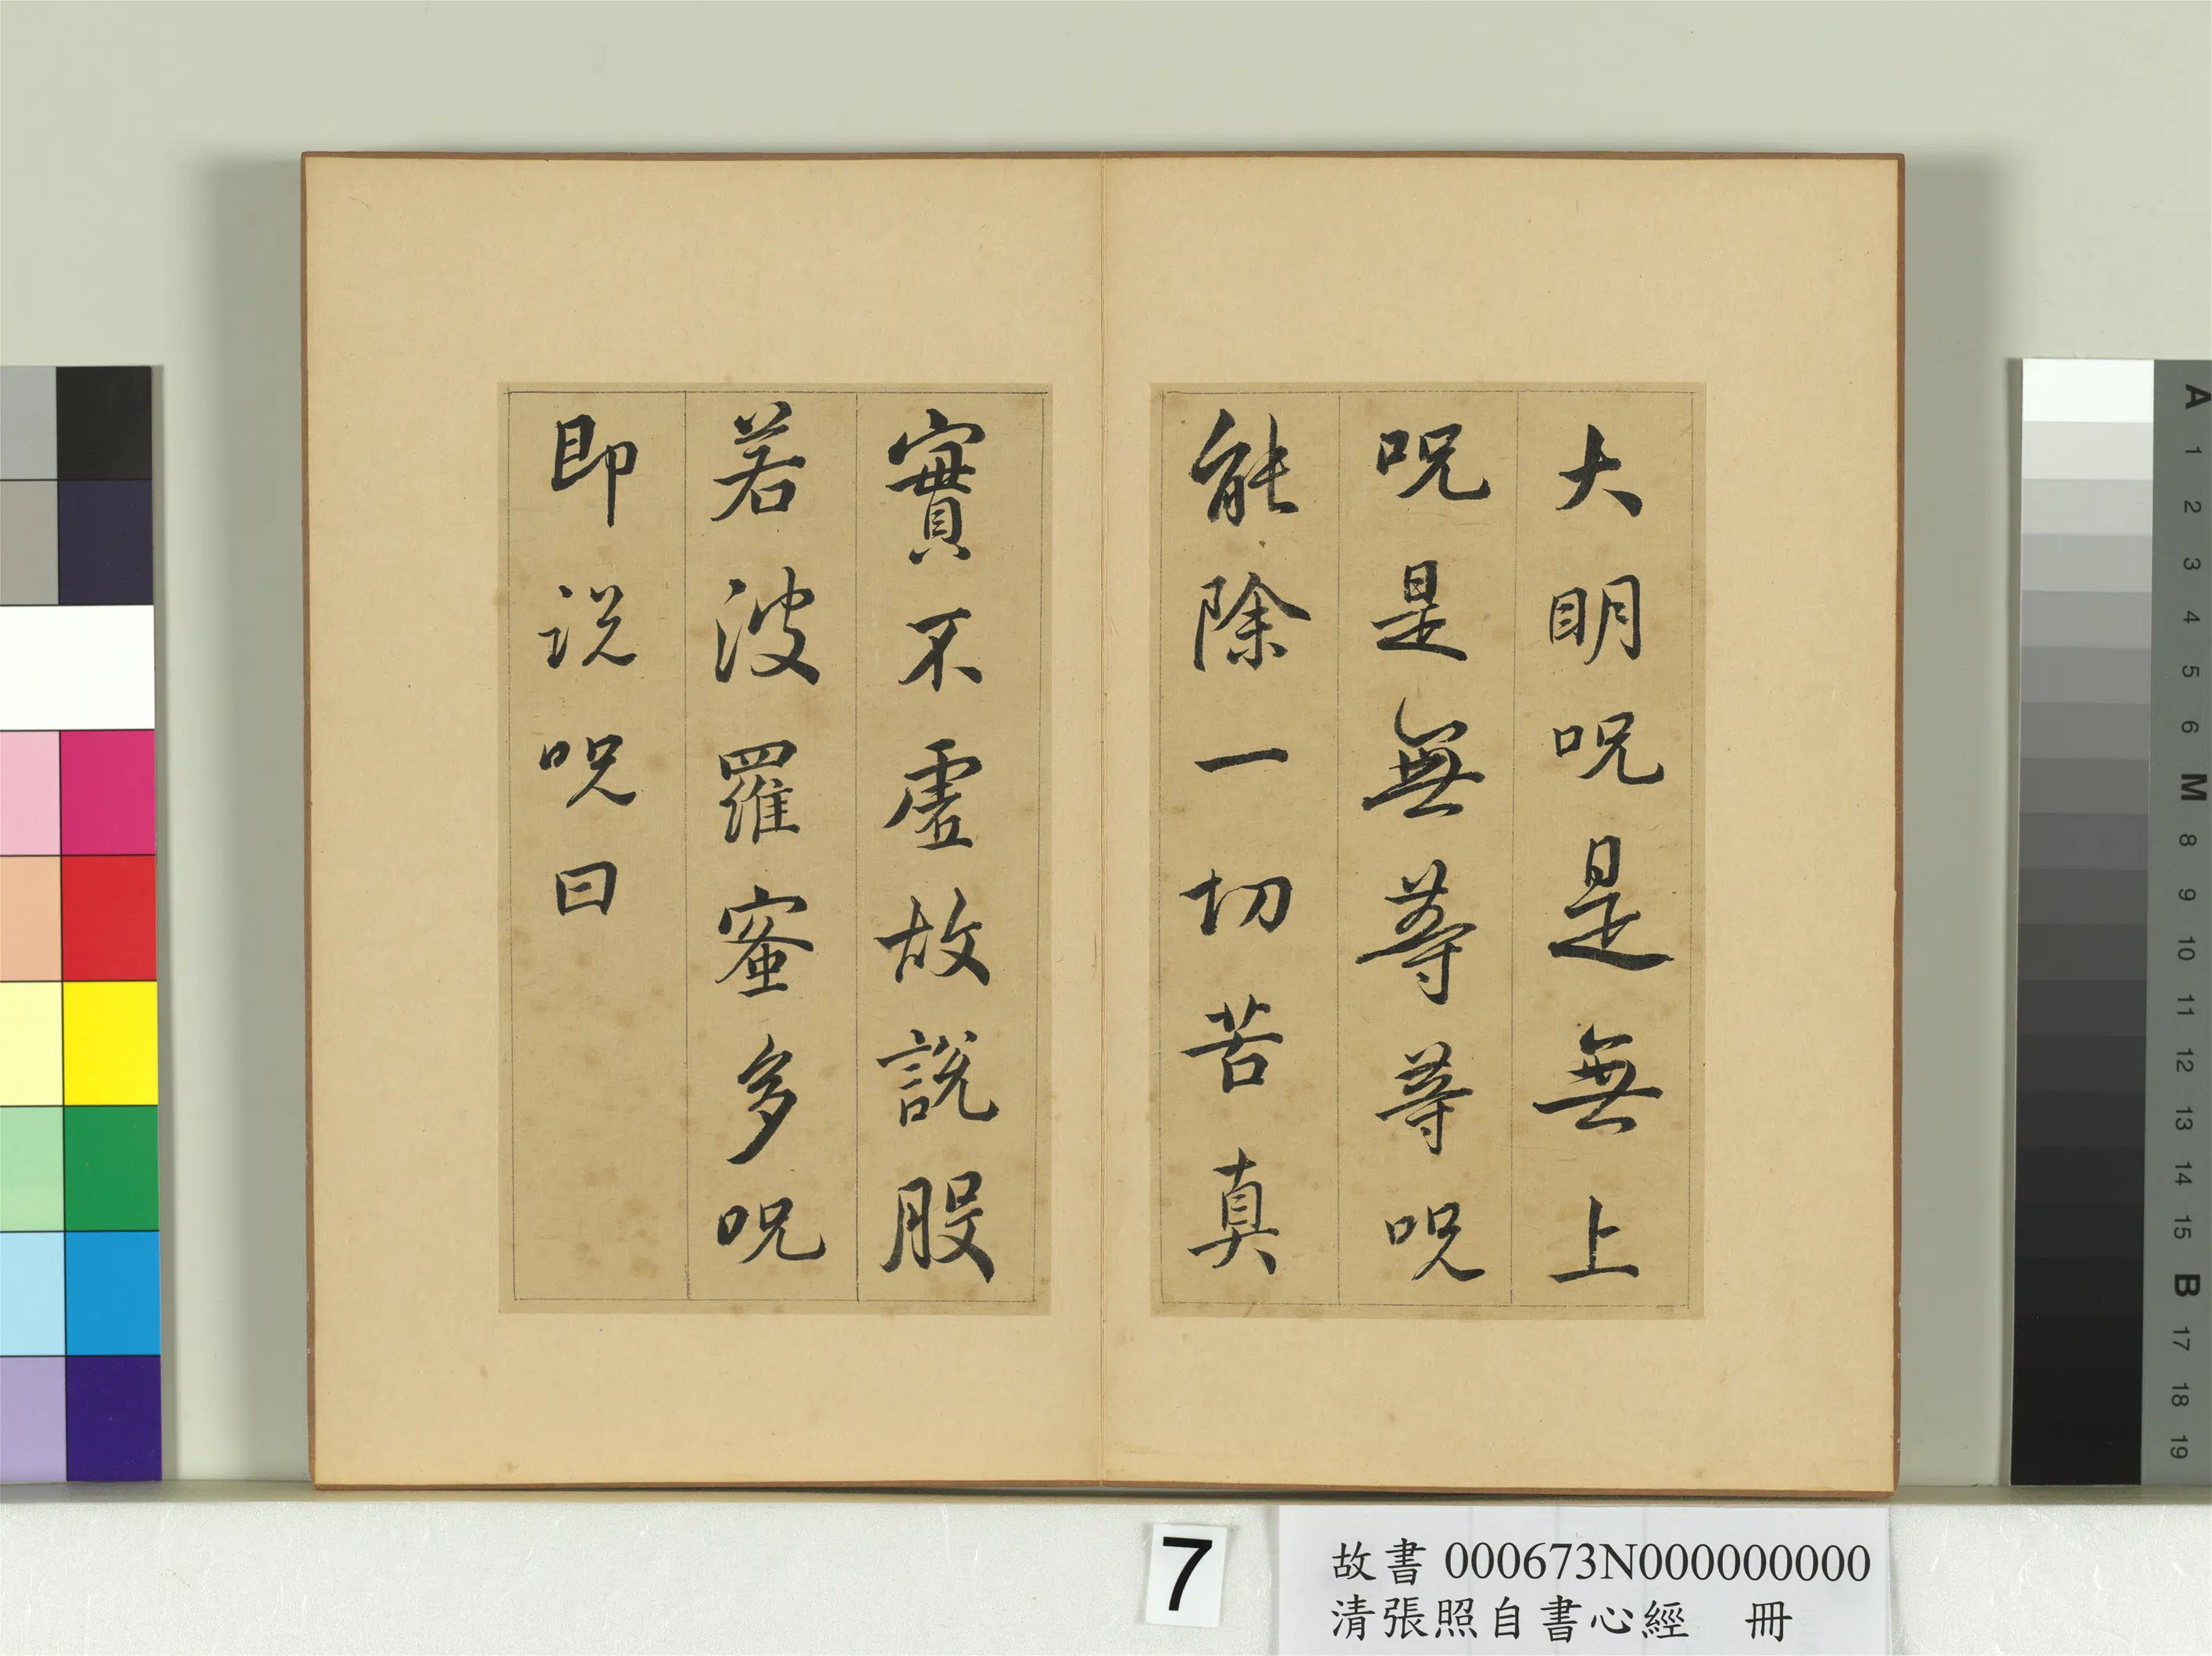 大明呪是無上
呪是無等等呪
能除一切苦真
實不虛故說般
若波羅蜜多呪
即說呪曰
7
故書 000673N000000000
清張照自書心經 冊
A
1
2
3
4
5
6
M
8
9
10
11
12
13
14
15
B
17
18
19